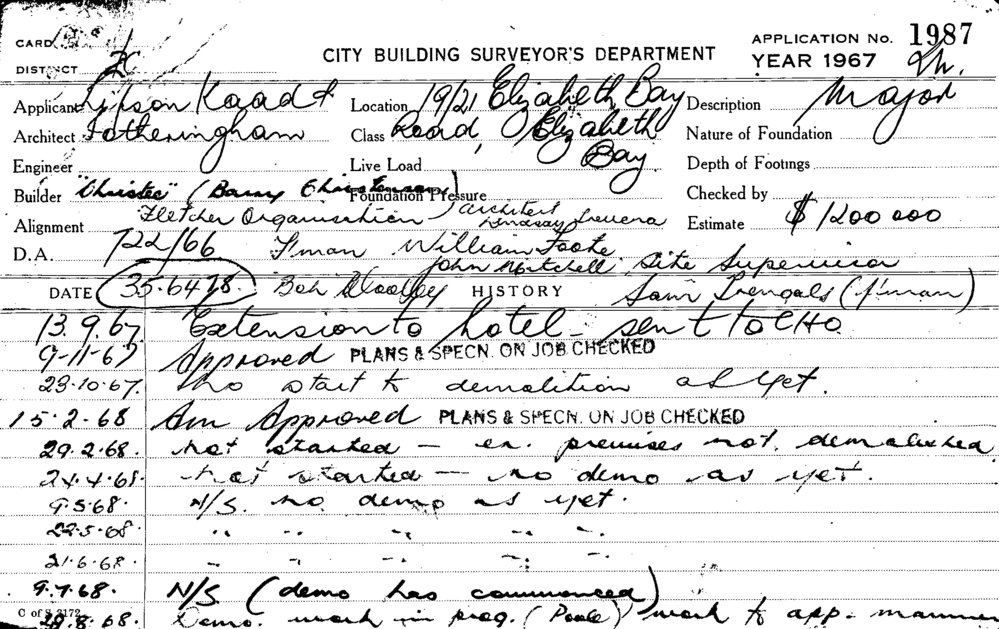 CARD
DISTRICT
CITY BUILDING SURVEYOR'S DEPARTMENT
APPLICATION No. 1987
YEAR 1967
Applicant Lipson Kaad &
Location 19/21 Elizabeth Bay
Description Major
Architect Fotheringham
Class Road, Elizabeth
Bay
Nature of Foundation
Engineer
Live Load
Depth of Footings
Builder "Christee" (Barry Christenson)
Foundation Pressure
Checked by
Alignment Fletcher Organisation
architect
Lindsay
Estimate $1200 000
D.A. 722/66 F'man William Foote
John Mitchell Site Supervisor
DATE 35.6478. Bob
HISTORY
Sam (f'man)
13.9.67 Extension to hotel - sent to CHO
9-11-67 Approved PLANS & SPECN. ON JOB CHECKED
23.10.67. No start to demolition as yet.
15.2.68 Am Approved PLANS & SPECN. ON JOB CHECKED
29.2.68. not started - ex. premises not demolished
24.4.68. not started - no demo as yet.
9.5.68. N/S. no demo as yet.
22.5.68. " " " " "
21.6.68. " " " " "
9.7.68. N/S (demo has commenced)
C of S 3172
.8.68. Demo. work in prog. (Poole) work to app. manner